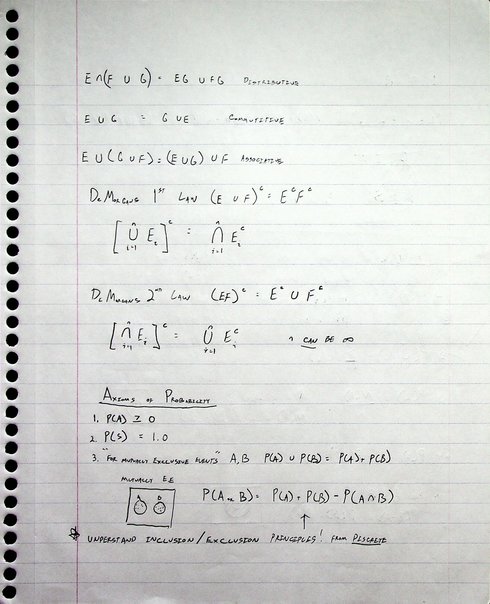 E ∩ (F ∪ G) = EG ∪ FG DISTRIBUTIVE
E ∪ G = G ∪ E COMMUTITIVE
E ∪ (G ∪ F) = (E ∪ G) ∪ F ASSOCIATIVE
DeMorgans 1ST LAW (E ∪ F)ᶜ = EᶜFᶜ
[ n ∪ i=1 Eᵢ ]ᶜ = n ∩ i=1 Eᵢᶜ
DeMorgans 2nd LAW (EF)ᶜ = Eᶜ ∪ Fᶜ
[ n ∩ i=1 Eᵢ ]ᶜ = n ∪ i=1 Eᵢᶜ n CAN BE ∞
AXIOMS OF PROBABILITY
1. P(A) ≥ 0
2. P(S) = 1.0
3. "FOR MUTUALLY EXCLUSIVE EVENTS" A, B P(A) ∪ P(B) = P(A) + P(B)
MUTUALLY E.E
A B P(A or B) = P(A) + P(B) - P(A ∩ B)
UNDERSTAND INCLUSION/EXCLUSION PRINCIPLES! FROM DISCRETE